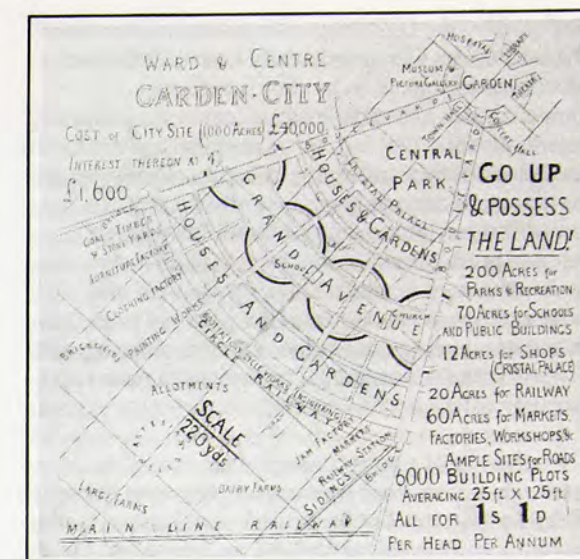 WARD & CENTRE
GARDEN-CITY
COST OF CITY SITE (1000 ACRES) £40,000.
INTEREST THEREON AT 4
£1.600
HOSPITAL
LIBRARY
MUSEUM &
PICTURE GALLERY
GARDEN
THEATRE
TOWN HALL
CONCERT HALL
CENTRAL
PARK
BOULEVARD
CRYSTAL PALACE
HOUSES & GARDENS
GRAND AVENUE
SCHOOL
CHURCH
HOUSES AND GARDENS
CIRCLE RAILWAY
COAL TIMBER
& STONE YARDS
FURNITURE FACTORY
CLOTHING FACTORY
PRINTING WORKS
BRICKFIELDS
ALLOTMENTS
SCALE
220 yds
JAM FACTORY
MARKETS
RAILWAY STATION
SIDINGS
BRIDGE
LARGE FARMS
DAIRY FARMS
MAIN LINE RAILWAY
GO UP
& POSSESS
THE LAND!
200 ACRES for
PARKS & RECREATION
70 ACRES for SCHOOLS
AND PUBLIC BUILDINGS
12 ACRES for SHOPS
(CRYSTAL PALACE)
20 ACRES for RAILWAY
60 ACRES for MARKETS
FACTORIES, WORKSHOPS, &c
AMPLE SITES for ROADS
6000 BUILDING PLOTS
AVERAGING 25 ft X 125 ft
ALL FOR 1S 1D
PER HEAD PER ANNUM